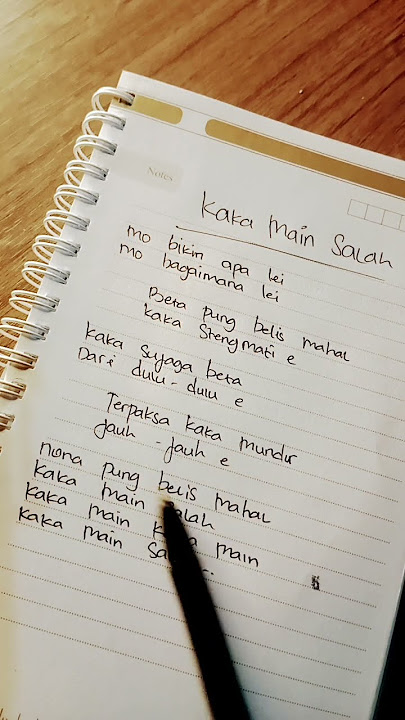 Notes
Kaka Main Salah
mo bikin apa lei
mo bagaimana lei
Beta pung belis mahal
kaka Stengmati e
kaka Sujaga beta
Dari dulu-dulu e
Terpaksa kaka mundur
Jauh-Jauh e
nona pung belis mahal
kaka main salah
kaka main main
kaka main